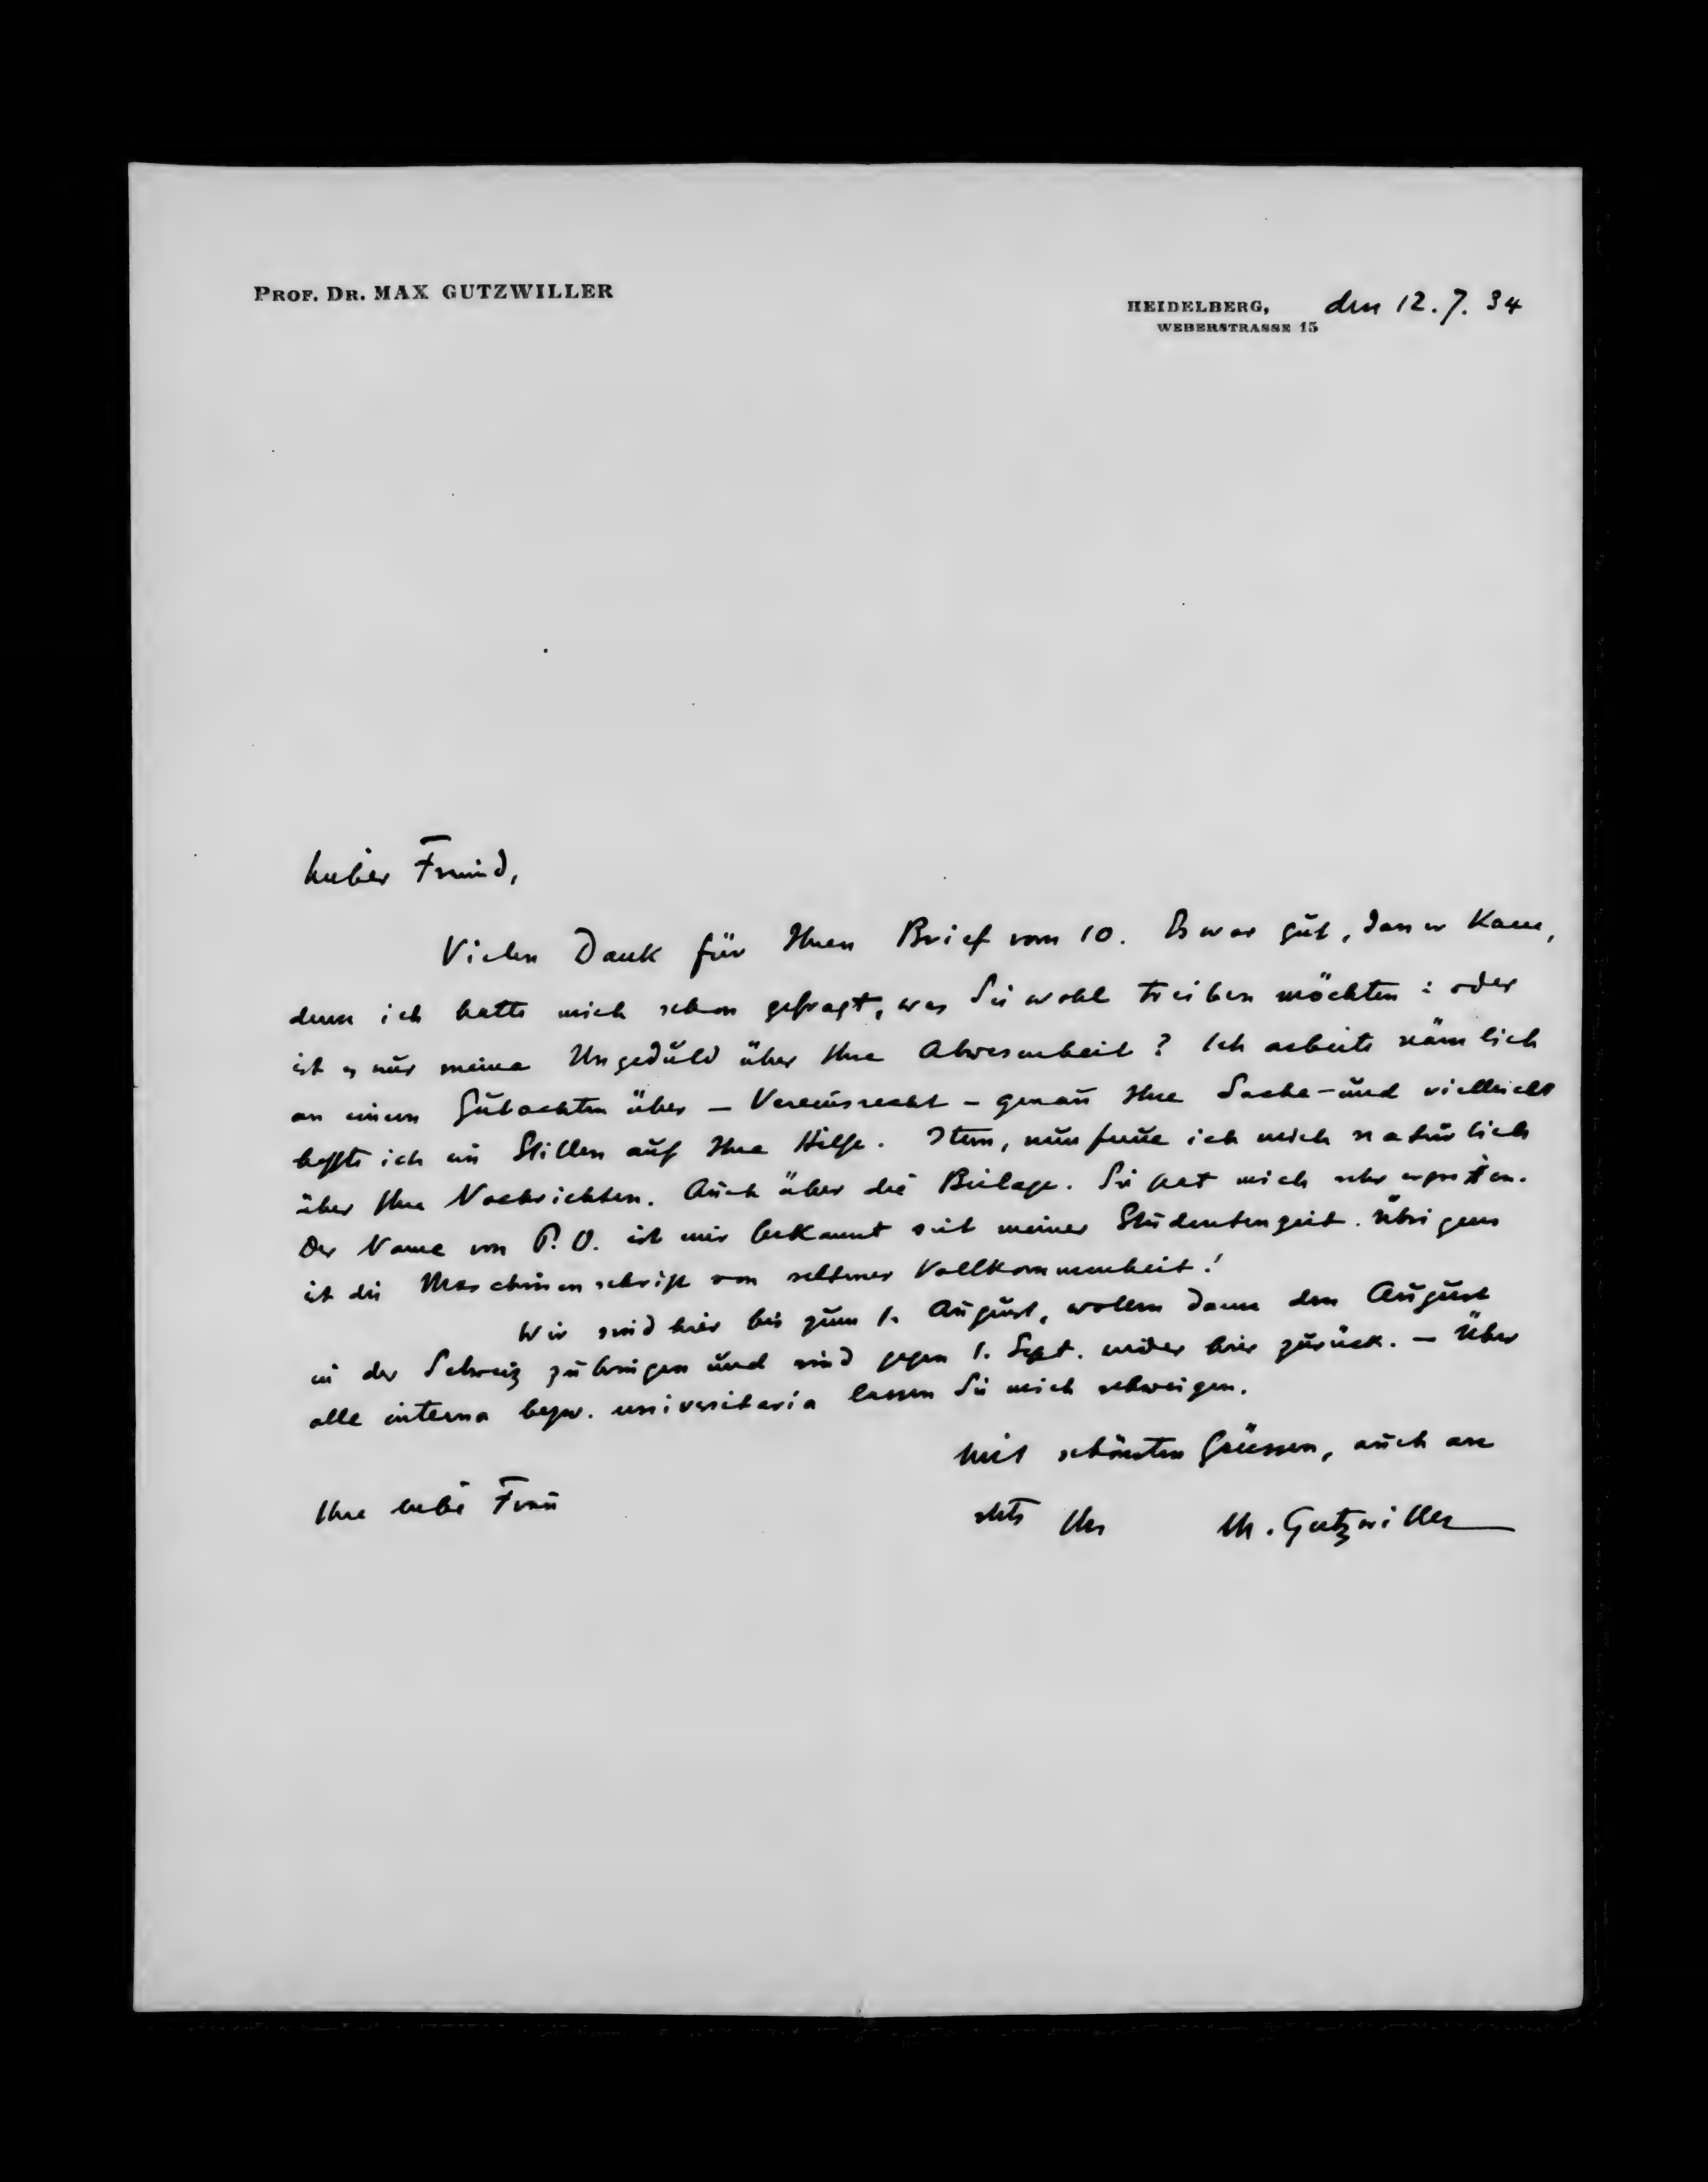 PROF. DR. MAX GUTZWILLER
HEIDELBERG, den 12. 7. 34
WEBERSTRASSE 15
Lieber Freund,
Vielen Dank für Ihren Brief vom 10. Es war gut, dass er kam,
denn ich hatte mich schon gefragt, was Sie wohl treiben möchten : oder
ist es nur meine Ungeduld über Ihre Abwesenheit ? Ich arbeite nämlich
an einem Gutachten über – Vereinsrecht – genau Ihre Sache – und vielleicht
hoffte ich im Stillen auf Ihre Hilfe. Item, nun freue ich mich natürlich
über Ihre Nachrichten. Auch über die Beilage. Sie hat mich sehr ergriffen.
Der Name von P. O. ist mir bekannt seit meiner Studentenzeit. Übrigens
ist die Maschinenschrift von seltener Vollkommenheit !
Wir sind hier bis zum 1. August, wollen dann den August
in der Schweiz zubringen und sind gegen 1. Sept. wieder hier zurück. – Über
alle interna bezw. universitaria lassen Sie mich schweigen.
Mit schönsten Grüssen, auch an
Ihre liebe Frau
stets Ihr M. Gutzwiller